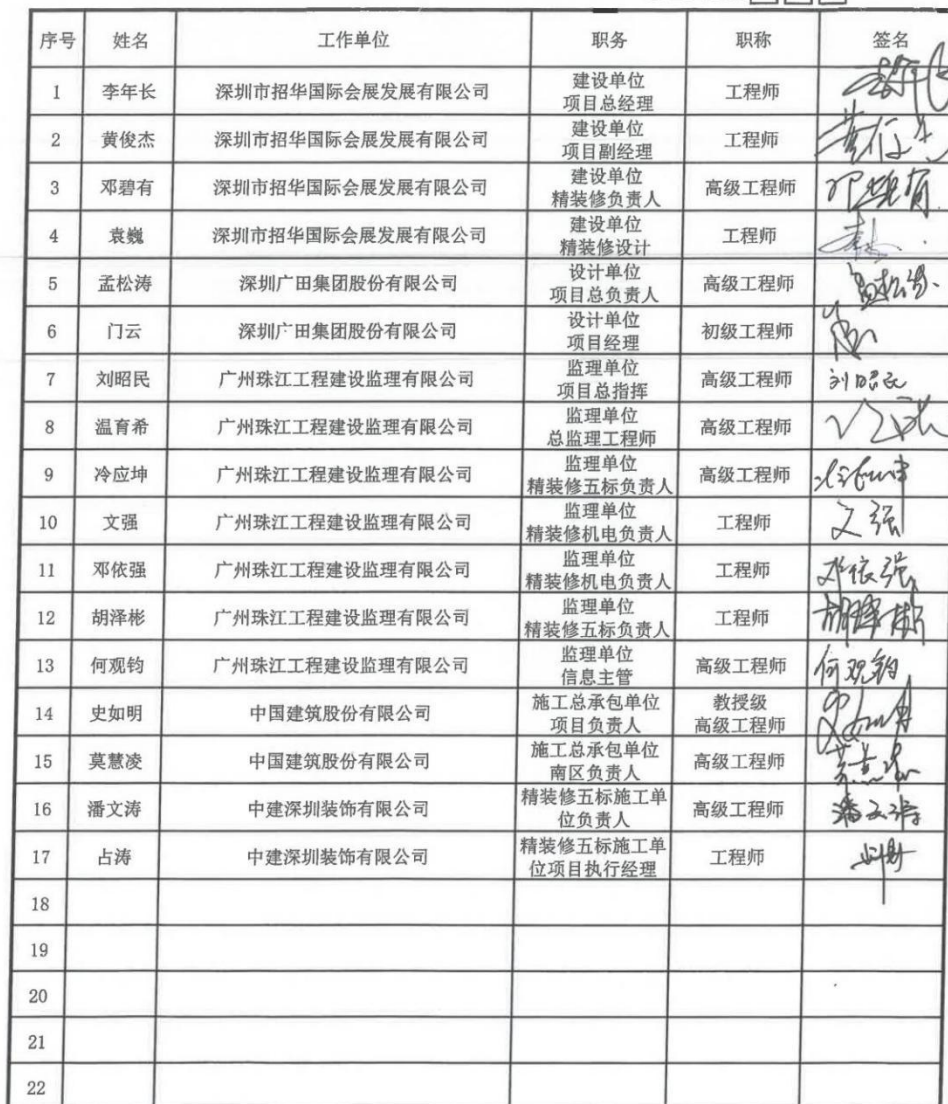 序号 姓名 工作单位 职务 职称 签名
1 李年长 深圳市招华国际会展发展有限公司 建设单位 项目总经理 工程师
2 黄俊杰 深圳市招华国际会展发展有限公司 建设单位 项目副经理 工程师
3 邓碧有 深圳市招华国际会展发展有限公司 建设单位 精装修负责人 高级工程师
4 袁巍 深圳市招华国际会展发展有限公司 建设单位 精装修设计 工程师
5 孟松涛 深圳广田集团股份有限公司 设计单位 项目总负责人 高级工程师
6 门云 深圳广田集团股份有限公司 设计单位 项目经理 初级工程师
7 刘昭民 广州珠江工程建设监理有限公司 监理单位 项目总指挥 高级工程师 刘昭民
8 温育希 广州珠江工程建设监理有限公司 监理单位 总监理工程师 高级工程师
9 冷应坤 广州珠江工程建设监理有限公司 监理单位 精装修五标负责人 高级工程师
10 文强 广州珠江工程建设监理有限公司 监理单位 精装修机电负责人 工程师 文强
11 邓依强 广州珠江工程建设监理有限公司 监理单位 精装修机电负责人 工程师 邓依强
12 胡泽彬 广州珠江工程建设监理有限公司 监理单位 精装修五标负责人 工程师 胡泽彬
13 何观钧 广州珠江工程建设监理有限公司 监理单位 信息主管 高级工程师 何观钧
14 史如明 中国建筑股份有限公司 施工总承包单位 项目负责人 教授级 高级工程师
15 莫慧凌 中国建筑股份有限公司 施工总承包单位 南区负责人 高级工程师
16 潘文涛 中建深圳装饰有限公司 精装修五标施工单 位负责人 高级工程师 潘文涛
17 占涛 中建深圳装饰有限公司 精装修五标施工单 位项目执行经理 工程师
18
19
20
21
22